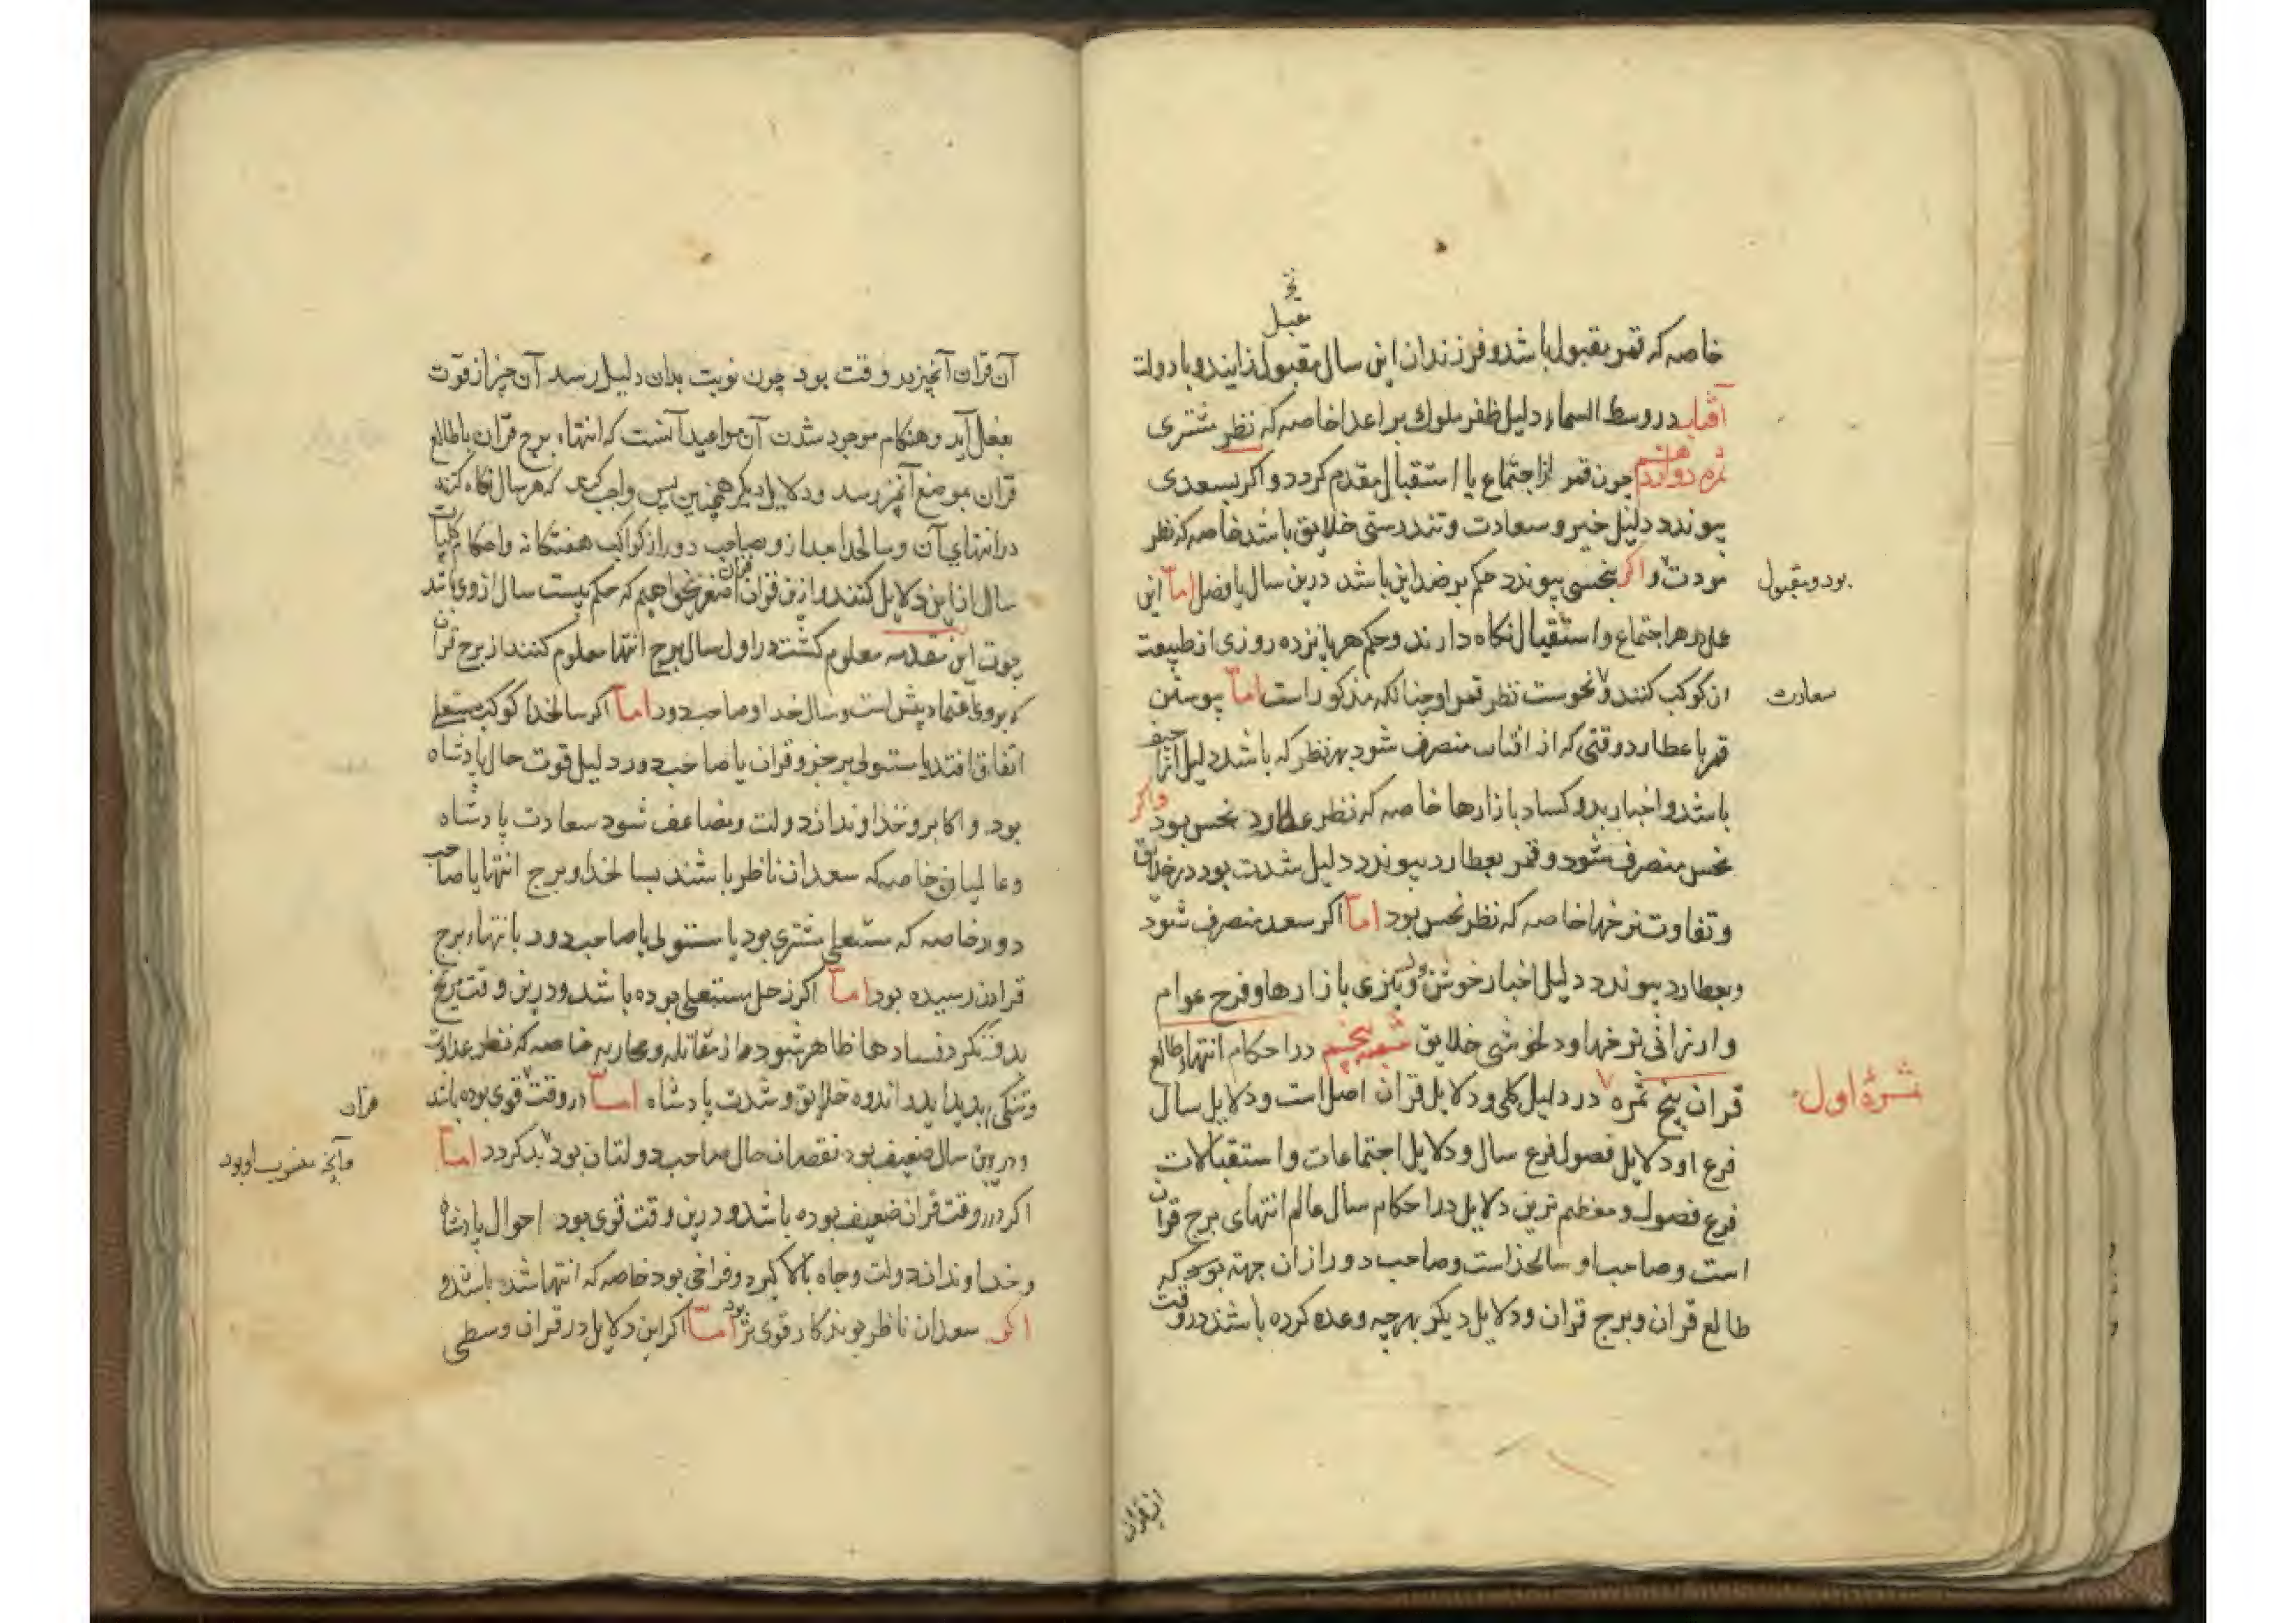 خاصه که قمر مقبول باشد و فرزندان این سال مقبول زایند و با دولت
مقبل
آفتاب در وسط السماء دلیل ظفر ملوک بر اعدا خاصه که نظر مشتری
ثمره دوازدهم چون قمر از اجتماع یا استقبال مقدم کردد و اکر بسعدی
پیوندد دلیل خیر و سعادت و تندرستی خلایق باشد خاصه که نظر
مودت و اکر بنحسی پیوندد حکم بر ضد این باشد درین سال یا فصل اما این
بود و مقبول
عمل در هر اجتماع و استقبال نکاه دارند و حکم هر پانزده روزی از طبیعت
آن کوکب کنند و نحوست نظر قمر او چنانکه مذکور است اما پیوستن
سعادت
قمر با عطارد وقتی که از افتاب منصرف شود بهر نظر که باشد دلیل اراجیف
باشد و اخبار بد و کساد بازارها خاصه که نظر عطارد نحس بود و اکر
نحس منصرف شود و قمر بعطارد پیوندد دلیل شدت بود در خلایق
و تفاوت نرخها خاصه که نظر نحس بود اما اکر سعد منصرف شود
و بعطارد پیوندد دلیل اخبار خوش و تیزی بازارها و فرح عوام
و ارزانی نرخها و دلخوشی خلایق شعبه پنجم در احکام انتهاء طالع
قران پنج ثمره در دلیل کلی و دلایل قران اصل است و دلایل سال
ثمرهٔ اول
فرع او دلایل فصول فرع سال و دلایل اجتماعات و استقبالات
فرع فصول و معظم ترین دلایل در احکام سال عالم انتهای برج قران
است و صاحب او سالخداست و صاحب دور از ان جهة بود که
طالع قران و برج قران و دلایل دیکر بهرچه وعده کرده باشند در وقت
آن قران آنچیز در وقت بود چون نوبت بدان دلیل رسد آن چیز از قوت
بفعل آید و هنکام موجود شدن آن مواعید آنست که انتهاء برج قران یا طالع
قران بموضع آنچیز رسد و دلایل دیکر همچنین پس واجب کند که هر سال نکاه کنند
در انتهای آن و سالخدا و صاحب دور از کواکب هفتکانه و احکام کلیات
سال از این دلایل کنند و ازین قران قران اصغر میخواهیم که حکم بیست سال از وی باشد
چون این مقدمه معلوم کشت در اول سال برج انتها معلوم کنند از برج قران
که بر وی اعتماد بیش است و سال خدا و صاحب دور اما اکر سالخدا کوکب مستعلی
اتفاق افتد یا مستولی بر جزو قران یا صاحب دور دلیل قوت حال پادشاه
بود و اکابر و خداوندان دولت و مضاعف شود سعادت پادشاه
و عالمیان خاصه که سعدان ناظر باشند بسالخدا و برج انتها یا صاحب
دور خاصه که مستعلی مشتری بود یا مستولی یا صاحب دور بانتهاء برج
قران رسیده بود اما اکر زحل مستعلی بوده باشد و درین وقت مریخ
بدو نکرد فسادها ظاهر شود از مقاتله و محاربه خاصه که نظر عداوت
و تنکی پدید اید و اندوه خلایق و شدت پادشاه اما در وقت قوی بوده باشد
قران
و درین سال ضعیف بود نقصان حال صاحب دولتان بود بد کردد اما
و آنچه منسوب باو بود
اکر در وقت قران ضعیف بوده باشد و درین وقت قوی بود احوال پادشاه
و خداوندان دولت و جاه بالا کیرد و فراخی بود خاصه که انتها شده باشد و
اکر سعدان ناظر بوند کار قوی تر بود اما اکر این دلایل در قران وسطی